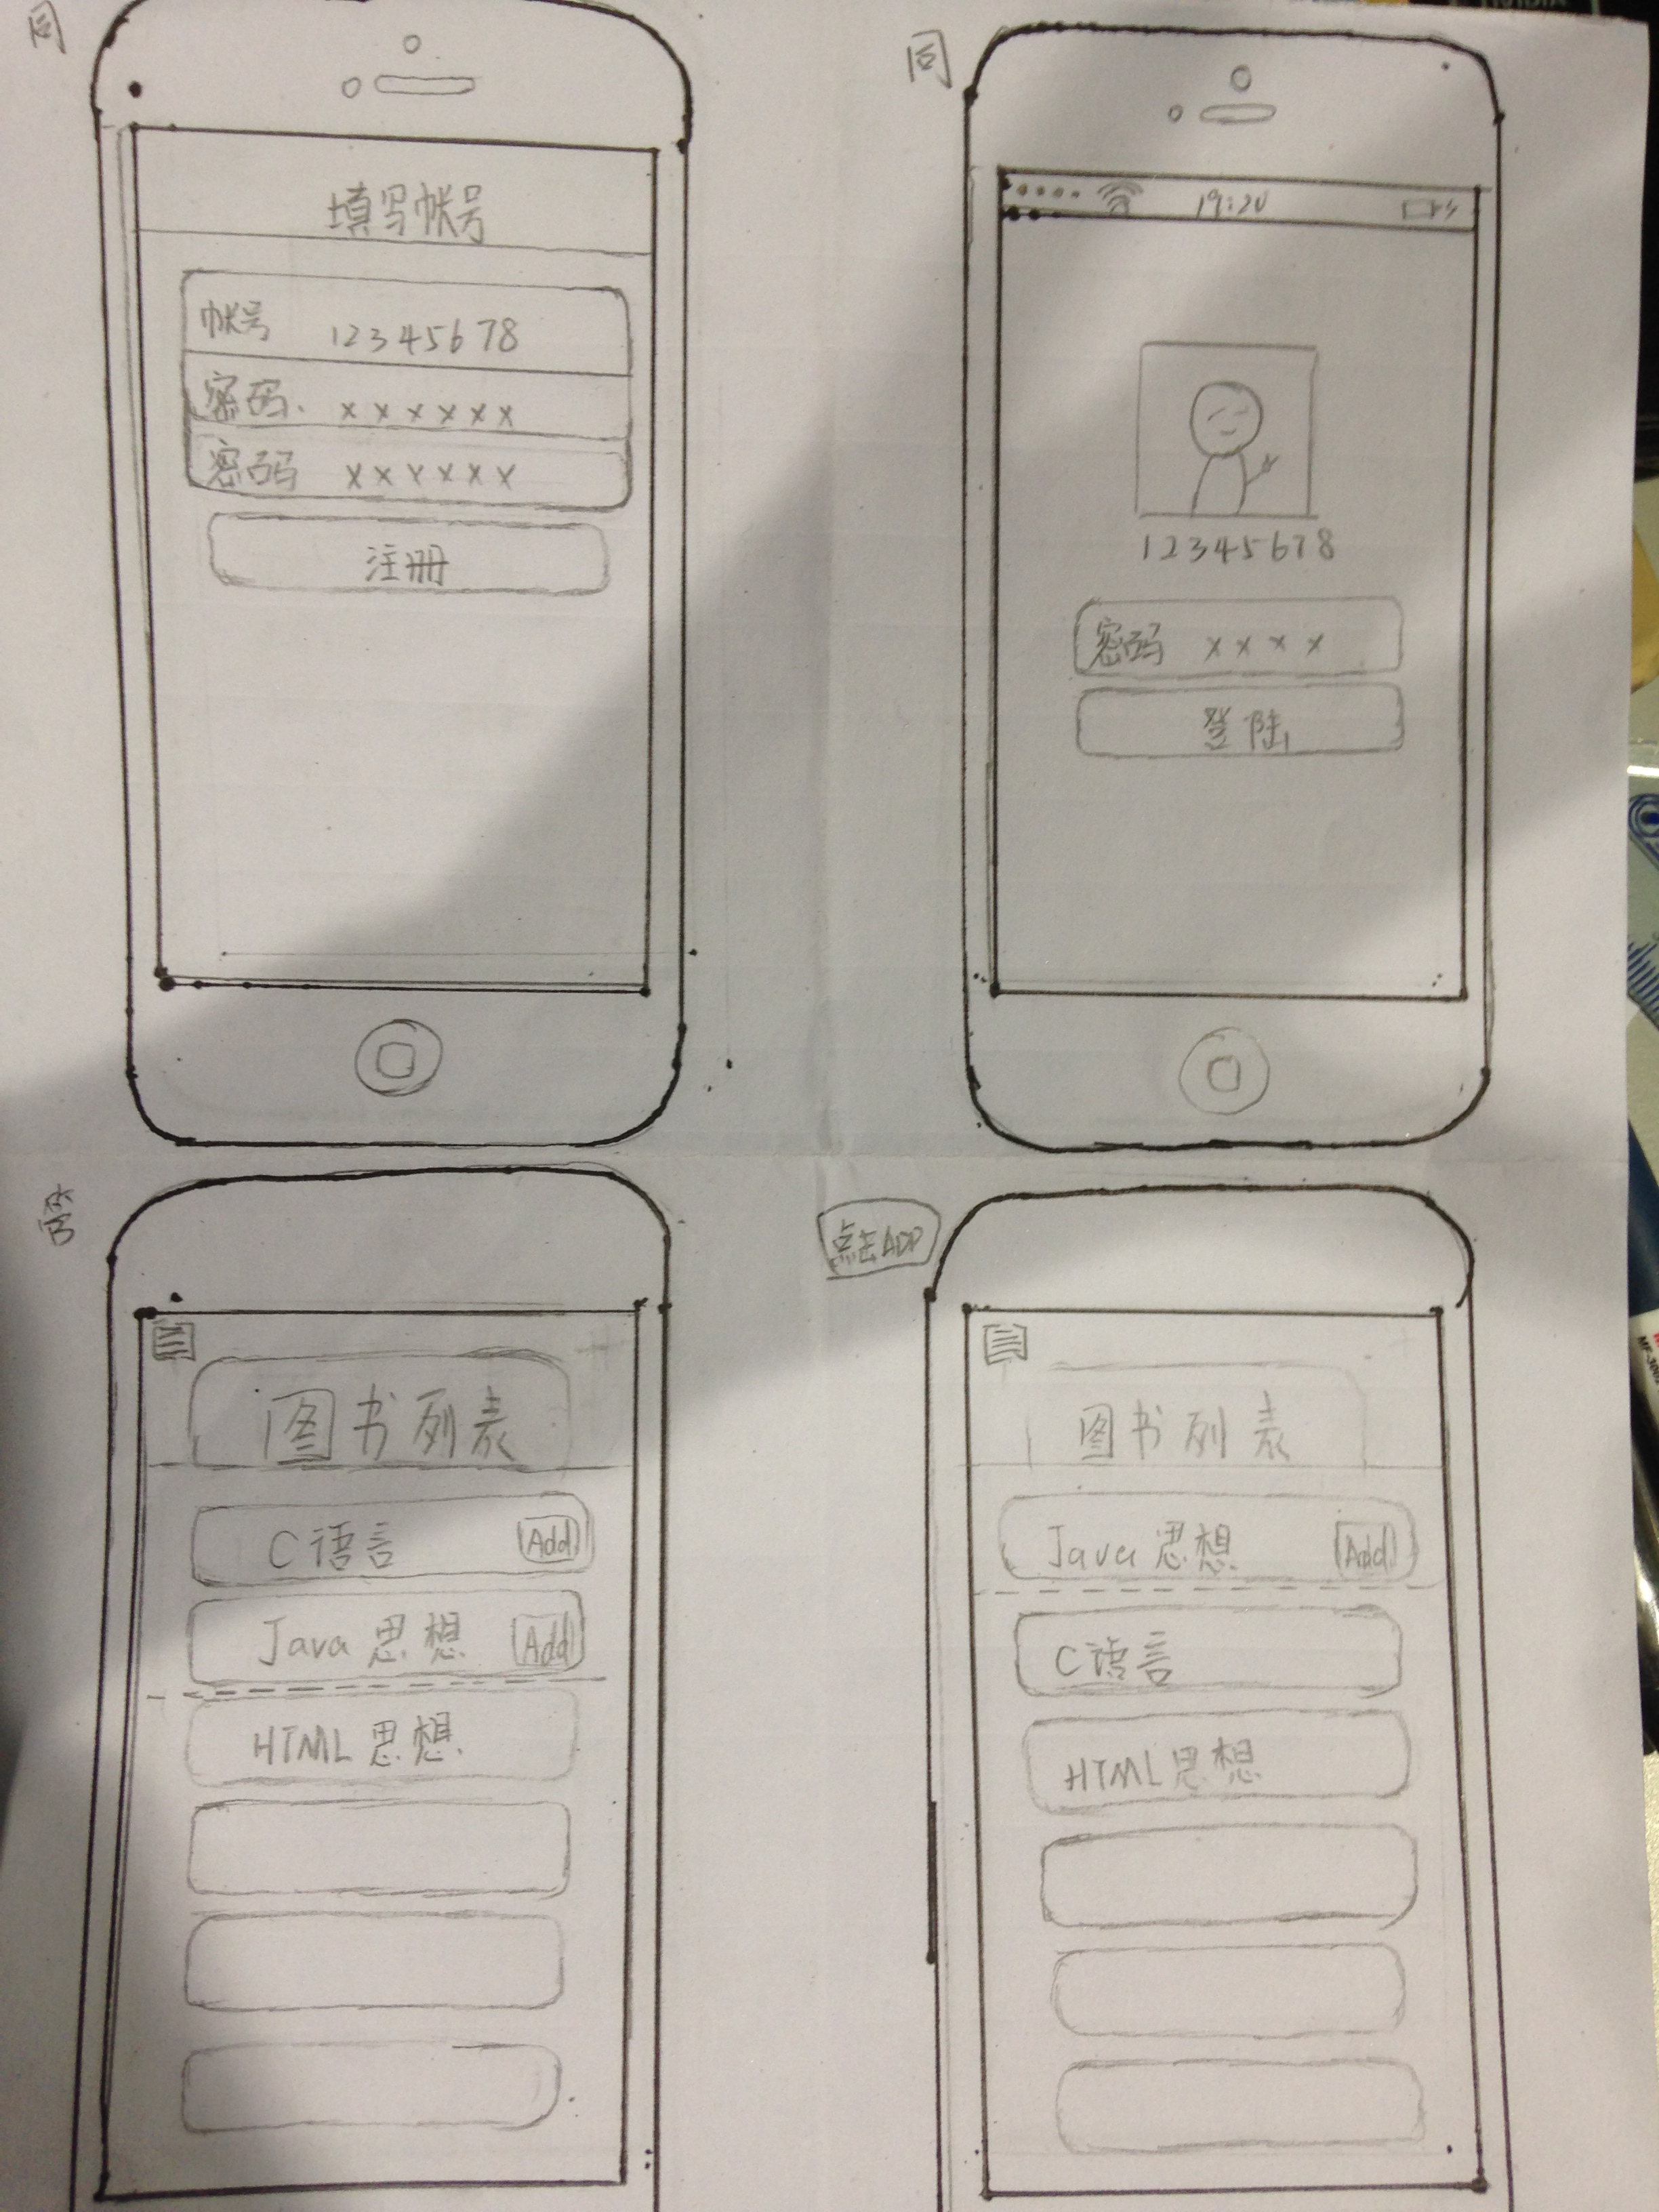 同
填写帐号
帐号 12345678
密码. xxxxxx
密码 xxxxxx
注册
同
19:20
12345678
密码 xxxx
登陆
图书列表
C语言 Add
Java思想 Add
HTML思想
点击ADD
图书列表
Java思想 Add
C语言
HTML思想